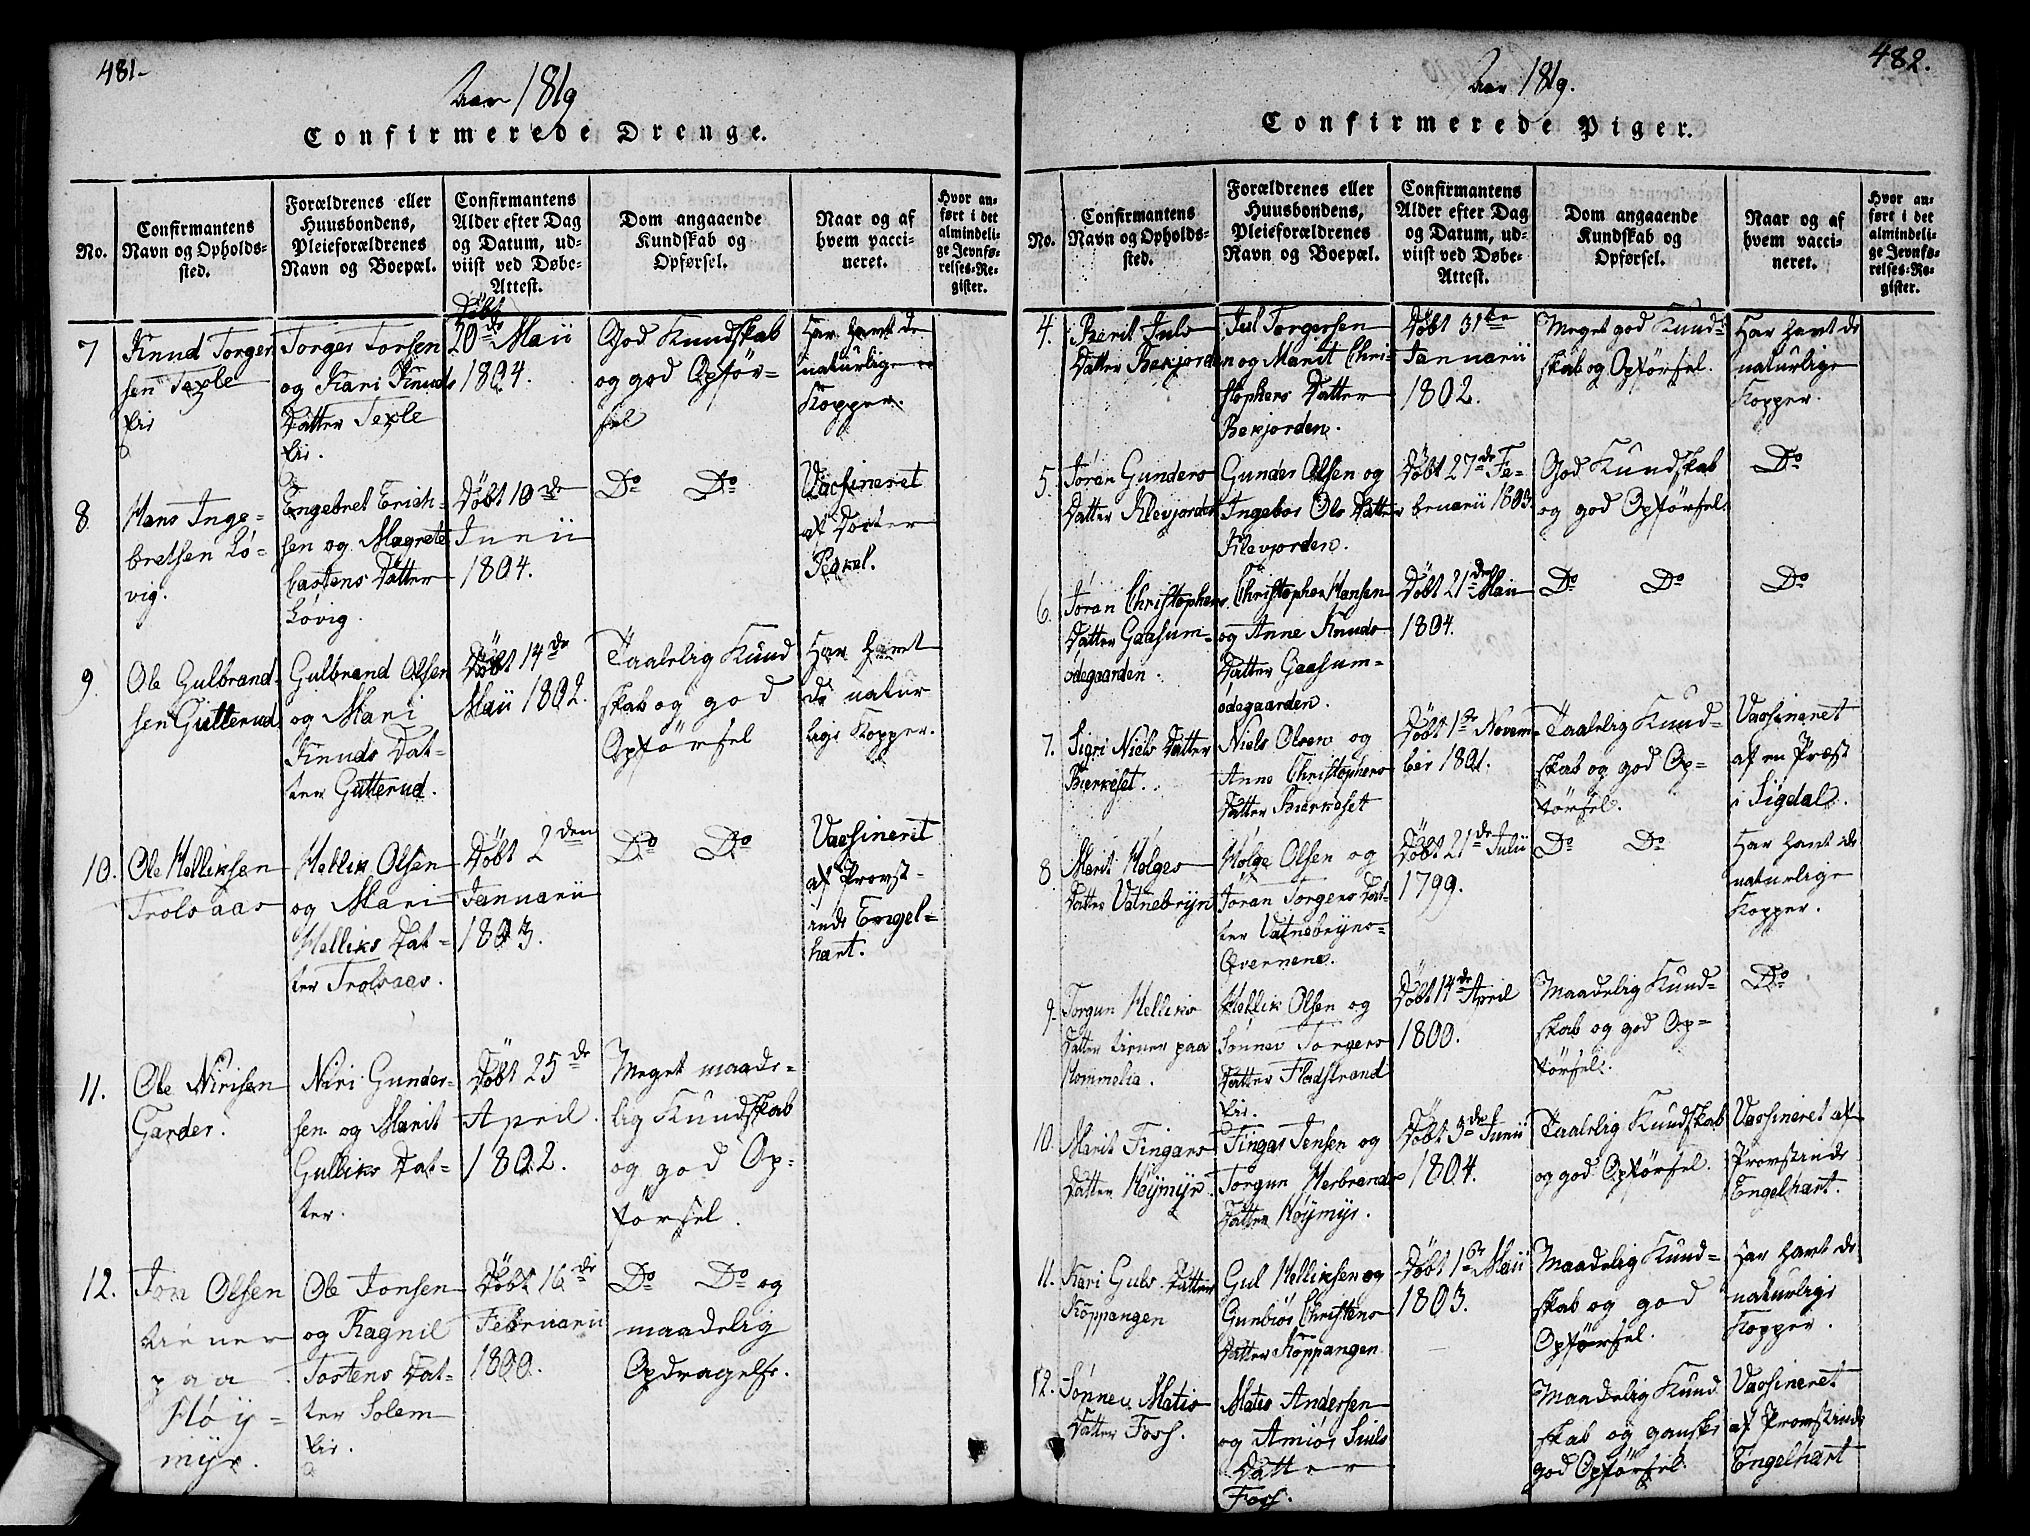 481-
Aar 1819
Confirmerede Drenge.
No.
Confirmantens
Navn og Opholds-
sted.
Forældrenes eller
Huusbondens,
Pleieforældrenes
Navn og Boepæl.
Confirmantens
Alder efter Dag
og Datum, ud-
viist ved Døbe-
Attest.
Dom angaaende
Kundskab og
Opførsel.
Naar og af
hvem vacci-
neret.
Hvor an-
ført i det
almindeli-
ge Jevnfø-
relses-Re-
gister.
7
Knud Torger
sen Texle
Eie
Torger Torsen
og Kari Knuds
Datter Texle
Eie.
Døbt
20de Maii
1804.
God Kundskab
og god Opfør-
sel
Har havt de
naturlige
Kopper.
8
Hans Inge-
bretsen Lø-
vig.
Engebret Erich-
sen og Magrete
Castens Datter
Løvig.
Døbt 10de
Junii
1804.
Do Do
Vacsineret
af Docter
Pavel.
9.
Ole Gulbrand-
sen Gutterud
Gulbrand Olsen
og Mari
Knuds Dat-
ter Gutterud.
Døbt 14de
Maii 1802.
Taalelig Kund
skab og god
Opførsel
Har havt
de natur
lige Kopper.
10.
Ole Helliksen
Trolsaas
Hellik Olsen
og Mari
Helliks Dat-
ter Trolsaas.
Døbt 2den
Januarii
1803.
Do Do
Vacsineret
af Provst-
inde Engel-
hart.
11.
Ole Nirisen
Garder.
Niri Gunder-
sen og Marit
Gulliks Dat-
ter.
Døbt 25de
April.
1802.
Meget maade-
lig Kundskab
og god Op-
førsel.
12.
Jon Olsen
tiener
paa
Høy-
myr.
Ole Jonsen
og Ragnil
Tostens Dat-
ter Solem
Eie.
Døbt 16de
Februarii
1800.
Do Do og
maadelig
Opdragelse.
482.
Aar 1819.
Confirmerede Piger.
No.
Confirmantens
Navn og Opholds-
sted.
Forældrenes eller
Huusbondens,
Pleieforældrenes
Navn og Boepæl.
Confirmantens
Alder efter Dag
og Datum, ud-
viist ved Døbe-
Attest.
Dom angaaende
Kundskab og
Opførsel.
Naar og af
hvem vacci-
neret.
Hvor an-
ført i det
almindeli-
ge Jevnfø-
relses-Re-
gister.
4.
Berit Juls
Datter Bekjorden
Juel Torgersen
og Marit Chri-
stophers Datter
Bekjorden.
Døbt 31te
Januarii
1802.
Meget god Kund-
skab og Opførsel.
Har havt de
naturlige
Kopper.
5.
Jøran Gunders
Datter Klevjorden
Gunder Olsen og
Ingebor Ols Datter
Klevjorden.
Døbt 27de Fe-
bruarii 1803.
God Kundskab
og god Opførsel.
Do
6.
Jøran Christophers
Datter Gaasum-
ødegaarden.
Christopher Hansen
og Anne Knuds
Datter Gaasum-
ødegaarden.
Døbt 21de Maii
1804.
Do Do
Do
7.
Sigri Niels Datter
Bierkeset.
Niels Olsen og
Anne Christophers
Datter Bierkeset
Døbt 1te Novem-
ber 1801.
Taalelig Kund-
skab og god Op-
førsel.
Vacsineret
af en Præst
i Sigdal.
8.
Marit Holges
Datter Vatnebryn
Holge Olsen og
Jøran Torgers Dat-
ter Vatnebryns-
Qvernene.
Døbt 21de Julii
1799.
Do Do
Har havt de
naturlige
Kopper.
9.
Torgun Helliks
Datter tiener paa
Hommelia.
Hellik Olsen og
Sønnev Torgers
Datter Fladstrand
Eie.
Døbt 14de April
1800.
Maadelig Kund-
skab og god Op-
førsel.
Do
10.
Marit Fingars
Datter Høymyr.
Fingar Jensen og
Torgun Herbrands
Datter Høymyr.
Døbt 3de Junii
1804.
Taalelig Kundskab
og god Opførsel.
Vacsineret af
Provstinde
Engelhart.
11.
Kari Guls Datter
Koppangen
Gul Helliksen og
Gunbiør Christens
Datter Koppangen
Døbt 1te Maii
1803.
Maadelig Kund-
skab og god
Opførsel.
Har havt de
naturlige
Kopper.
12.
Sønnev Matis
Datter Foss.
Matis Andersen
og Amiør Juels
Datter
Foss.
Maadelig Kund
skab og ganske
god Opførsel.
Vacsineret
af Provstinde
Engelhart